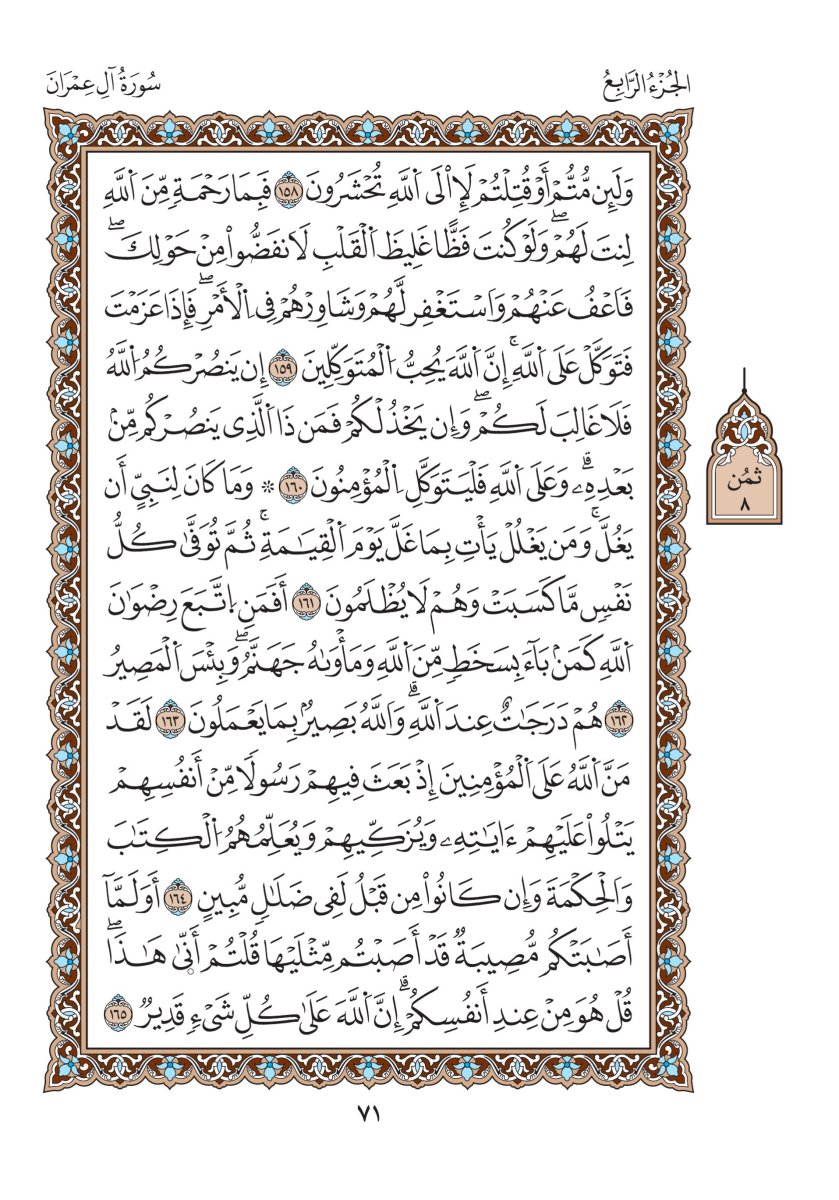 الجُزْءُ الرَّابِعُ
سُورَةُ آلِ عِمْرَانَ
وَلَئِن مُّتُّمْ أَوْ قُتِلْتُمْ لَإِاْلَى اَ۬للَّهِ تُحْشَرُونَ ١٥٨ فَبِمَا رَحْمَةٖ مِّنَ اَ۬للَّهِ
لِنتَ لَهُمْۖ وَلَوْ كُنتَ فَظًّا غَلِيظَ اَ۬لْقَلْبِ لَانفَضُّواْ مِنْ حَوْلِكَۖ
فَاعْفُ عَنْهُمْ وَاسْتَغْفِر لَّهُمْ وَشَاوِرْهُمْ فِي اِ۬لْأَمْرِۖ فَإِذَا عَزَمْتَ
فَتَوَكَّلْ عَلَى اَ۬للَّهِۚ إِنَّ اَ۬للَّهَ يُحِبُّ اُ۬لْمُتَوَكِّلِينَ ١٥٩ إِن يَنصُرْكُمُ اُ۬للَّهُ
فَلَا غَالِبَ لَكُمْۖ وَإِن يَخْذُلْكُمْ فَمَن ذَا اَ۬لَّذِي يَنصُرْكُم مِّنۢ
بَعْدِهِۦۗ وَعَلَى اَ۬للَّهِ فَلْيَتَوَكَّلِ اِ۬لْمُؤْمِنُونَ ١٦٠ * وَمَا كَانَ لِنَبِيٍّ أَن
يَغُلَّۚ وَمَن يَغْلُلْ يَأْتِ بِمَا غَلَّ يَوْمَ اَ۬لْقِيَٰمَةِۚ ثُمَّ تُوَفَّىٰ كُلُّ
نَفْسٖ مَّا كَسَبَتْ وَهُمْ لَا يُظْلَمُونَ ١٦١ أَفَمَنِ اِ۪تَّبَعَ رِضْوَٰنَ
اَ۬للَّهِ كَمَنۢ بَآءَ بِسَخَطٖ مِّنَ اَ۬للَّهِ وَمَأْوَىٰهُ جَهَنَّمُۖ وَبِئْسَ اَ۬لْمَصِيرُ
١٦٢ هُمْ دَرَجَٰتٌ عِندَ اَ۬للَّهِۗ وَاللَّهُ بَصِيرُۢ بِمَا يَعْمَلُونَ ١٦٣ لَقَدْ
مَنَّ اَ۬للَّهُ عَلَى اَ۬لْمُؤْمِنِينَ إِذْ بَعَثَ فِيهِمْ رَسُولٗا مِّنْ أَنفُسِهِمْ
يَتْلُواْ عَلَيْهِمْ ءَايَٰتِهِۦ وَيُزَكِّيهِمْ وَيُعَلِّمُهُمُ اُ۬لْكِتَٰبَ
وَالْحِكْمَةَ وَإِن كَانُواْ مِن قَبْلُ لَفِي ضَلَٰلٖ مُّبِينٍ ١٦٤ أَوَلَمَّآ
أَصَٰبَتْكُم مُّصِيبَةٞ قَدْ أَصَبْتُم مِّثْلَيْهَا قُلْتُمْ أَنّ۪ىٰ هَٰذَاۖ
قُلْ هُوَ مِنْ عِندِ أَنفُسِكُمْۗ إِنَّ اَ۬للَّهَ عَلَىٰ كُلِّ شَيْءٖ قَدِيرٞ ١٦٥
ثُمُن
٨
٧١